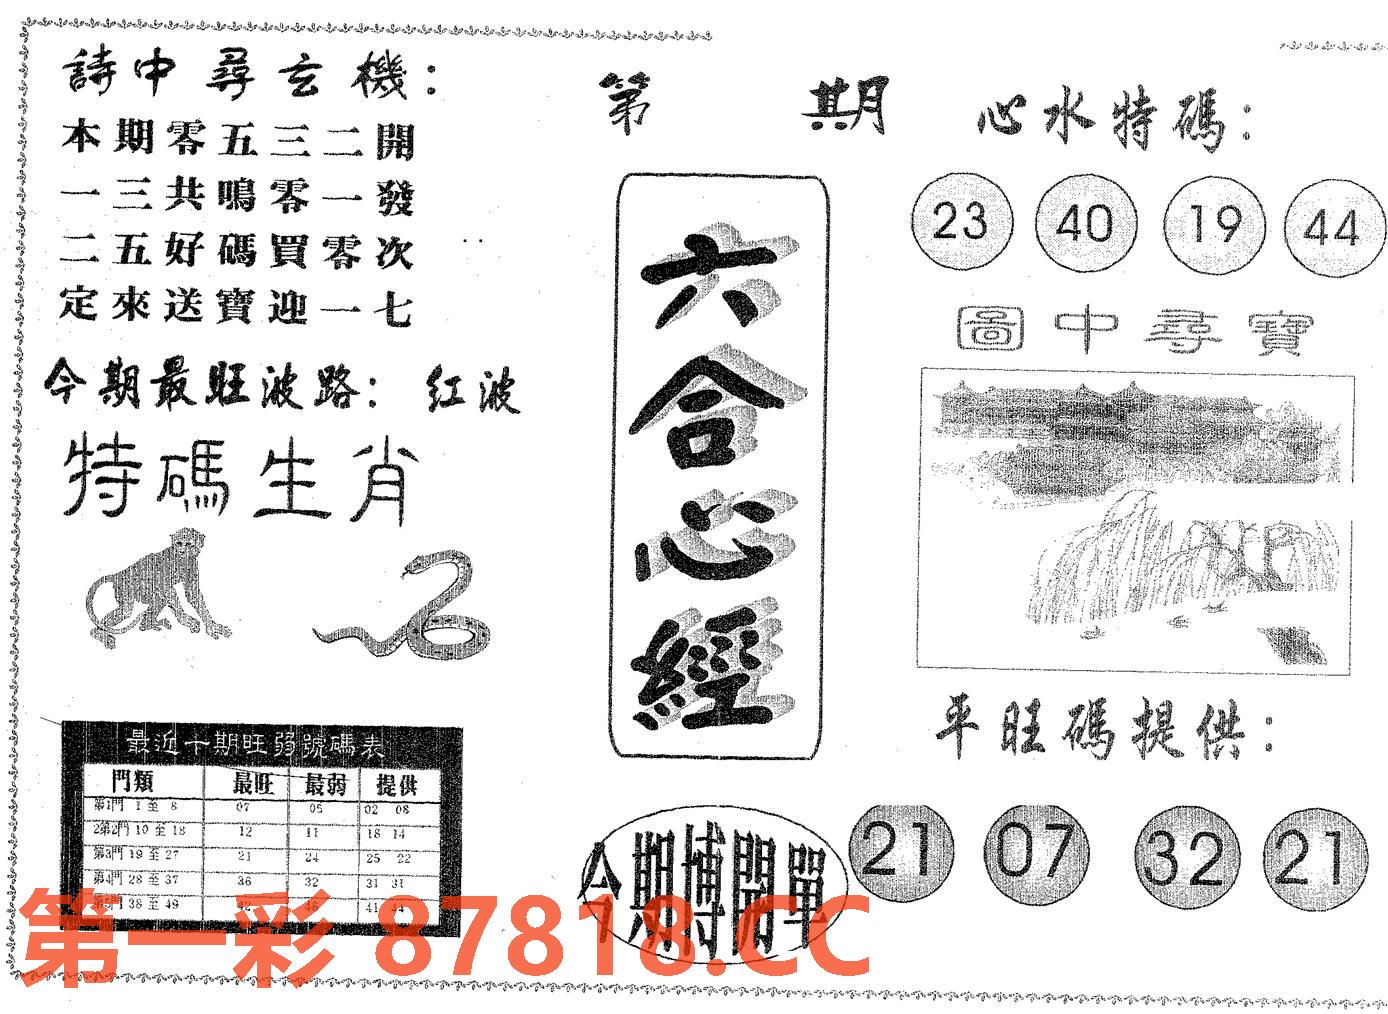 詩中尋玄機：
本期零五三二開
一三共鳴零一發
二五好碼買零次
定來送寶迎一七
今期最旺波路：红波
特碼生肖
最近十期旺弱號碼表
門類 最旺 最弱 提供
第1門 1至 8 07 05 02 08
2第2門 10至18 12 11 18 14
第3門 19至27 21 24 25 22
第4門 28至37 36 32 31 31
第5門 38至49 42 46 41 44
第 期
六合心經
今期博開單
心水特碼：
23 40 19 44
圖中尋寶
平旺碼提供：
21 07 32 21
第一彩 87818.CC